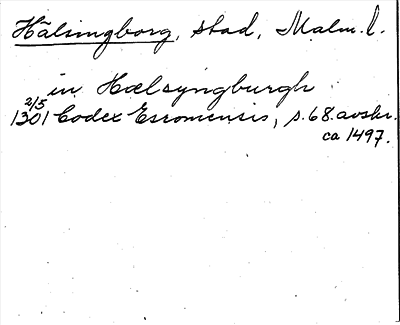 Hälsingborg, stad, Malm. l.
in Hælsyngburgh
2/5
1301 Codex Esromensis, s. 68. avskr.
ca 1497.